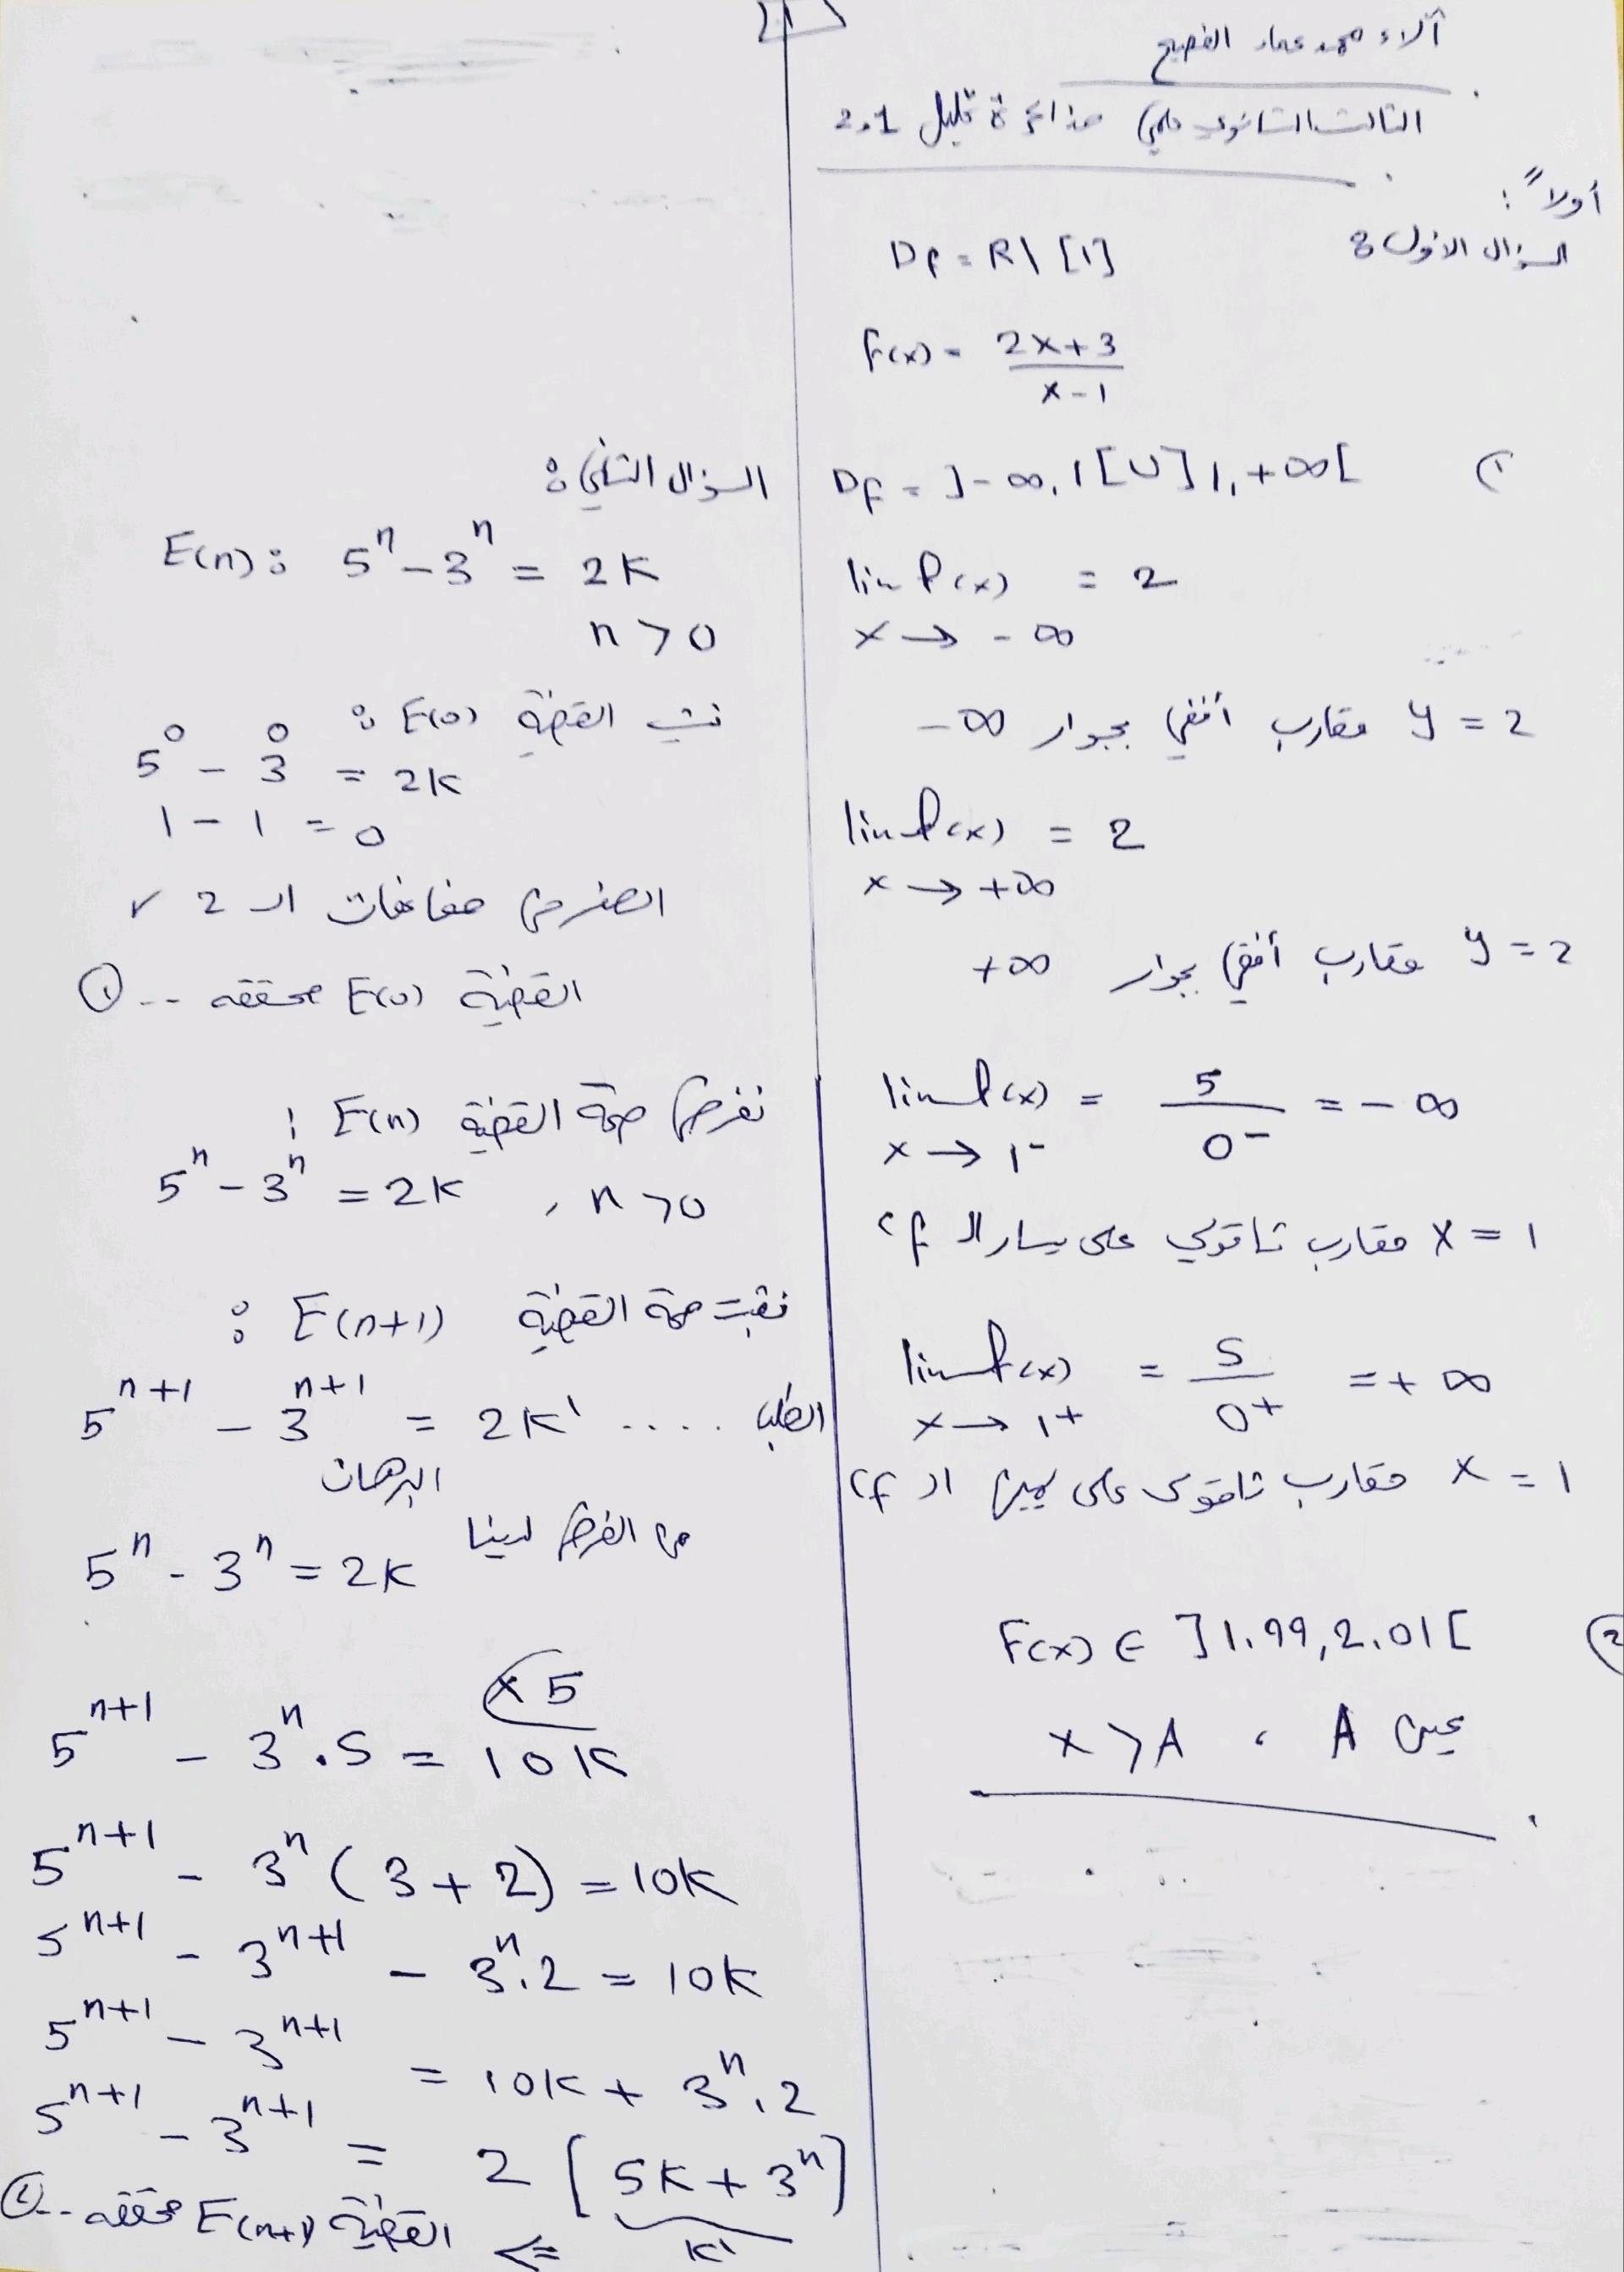 آلاء محمد عماد الفصيح
الثالث الثانوي علمي مذاكرة تحليل 2.1
أولاً:
السؤال الأول:
Df = R\ {1}
f(x) = \frac{2x+3}{x-1}
1) Df = ]-∞, 1[ U ]1, +∞[
lim f(x) = 2
x → -∞
y = 2 مقارب أفقي بجوار -∞
lim f(x) = 2
x → +∞
y = 2 مقارب أفقي بجوار +∞
lim f(x) = \frac{5}{0^-} = -∞
x → 1^-
x = 1 مقارب شاقولي على يسار الـ
lim f(x) = \frac{5}{0^+} = +∞
x → 1^+
x = 1 مقارب شاقولي على يمين الـ
② F(x) ∈ ]1.99, 2.01[
عين A ، x > A
السؤال الثاني:
E(n): 5^n - 3^n = 2K
n > 0
نثبت القضية E(0):
5^0 - 3^0 = 2K
1 - 1 = 0
الصفر من مضاعفات الـ 2 ✓
القضية E(0) محققه .. ①
نفرض صحة القضية E(n) :
5^n - 3^n = 2K , n > 0
نثبت صحة القضية E(n+1) :
5^{n+1} - 3^{n+1} = 2K' .... الطلب
البرهان
من الفرض لدينا 5^n - 3^n = 2K
× 5
5^{n+1} - 3^n . 5 = 10K
5^{n+1} - 3^n (3 + 2) = 10K
5^{n+1} - 3^{n+1} - 3^n . 2 = 10K
5^{n+1} - 3^{n+1} = 10K + 3^n . 2
5^{n+1} - 3^{n+1} = 2 [5K + 3^n]
K'
<= القضية E(n+1) محققه .. ②